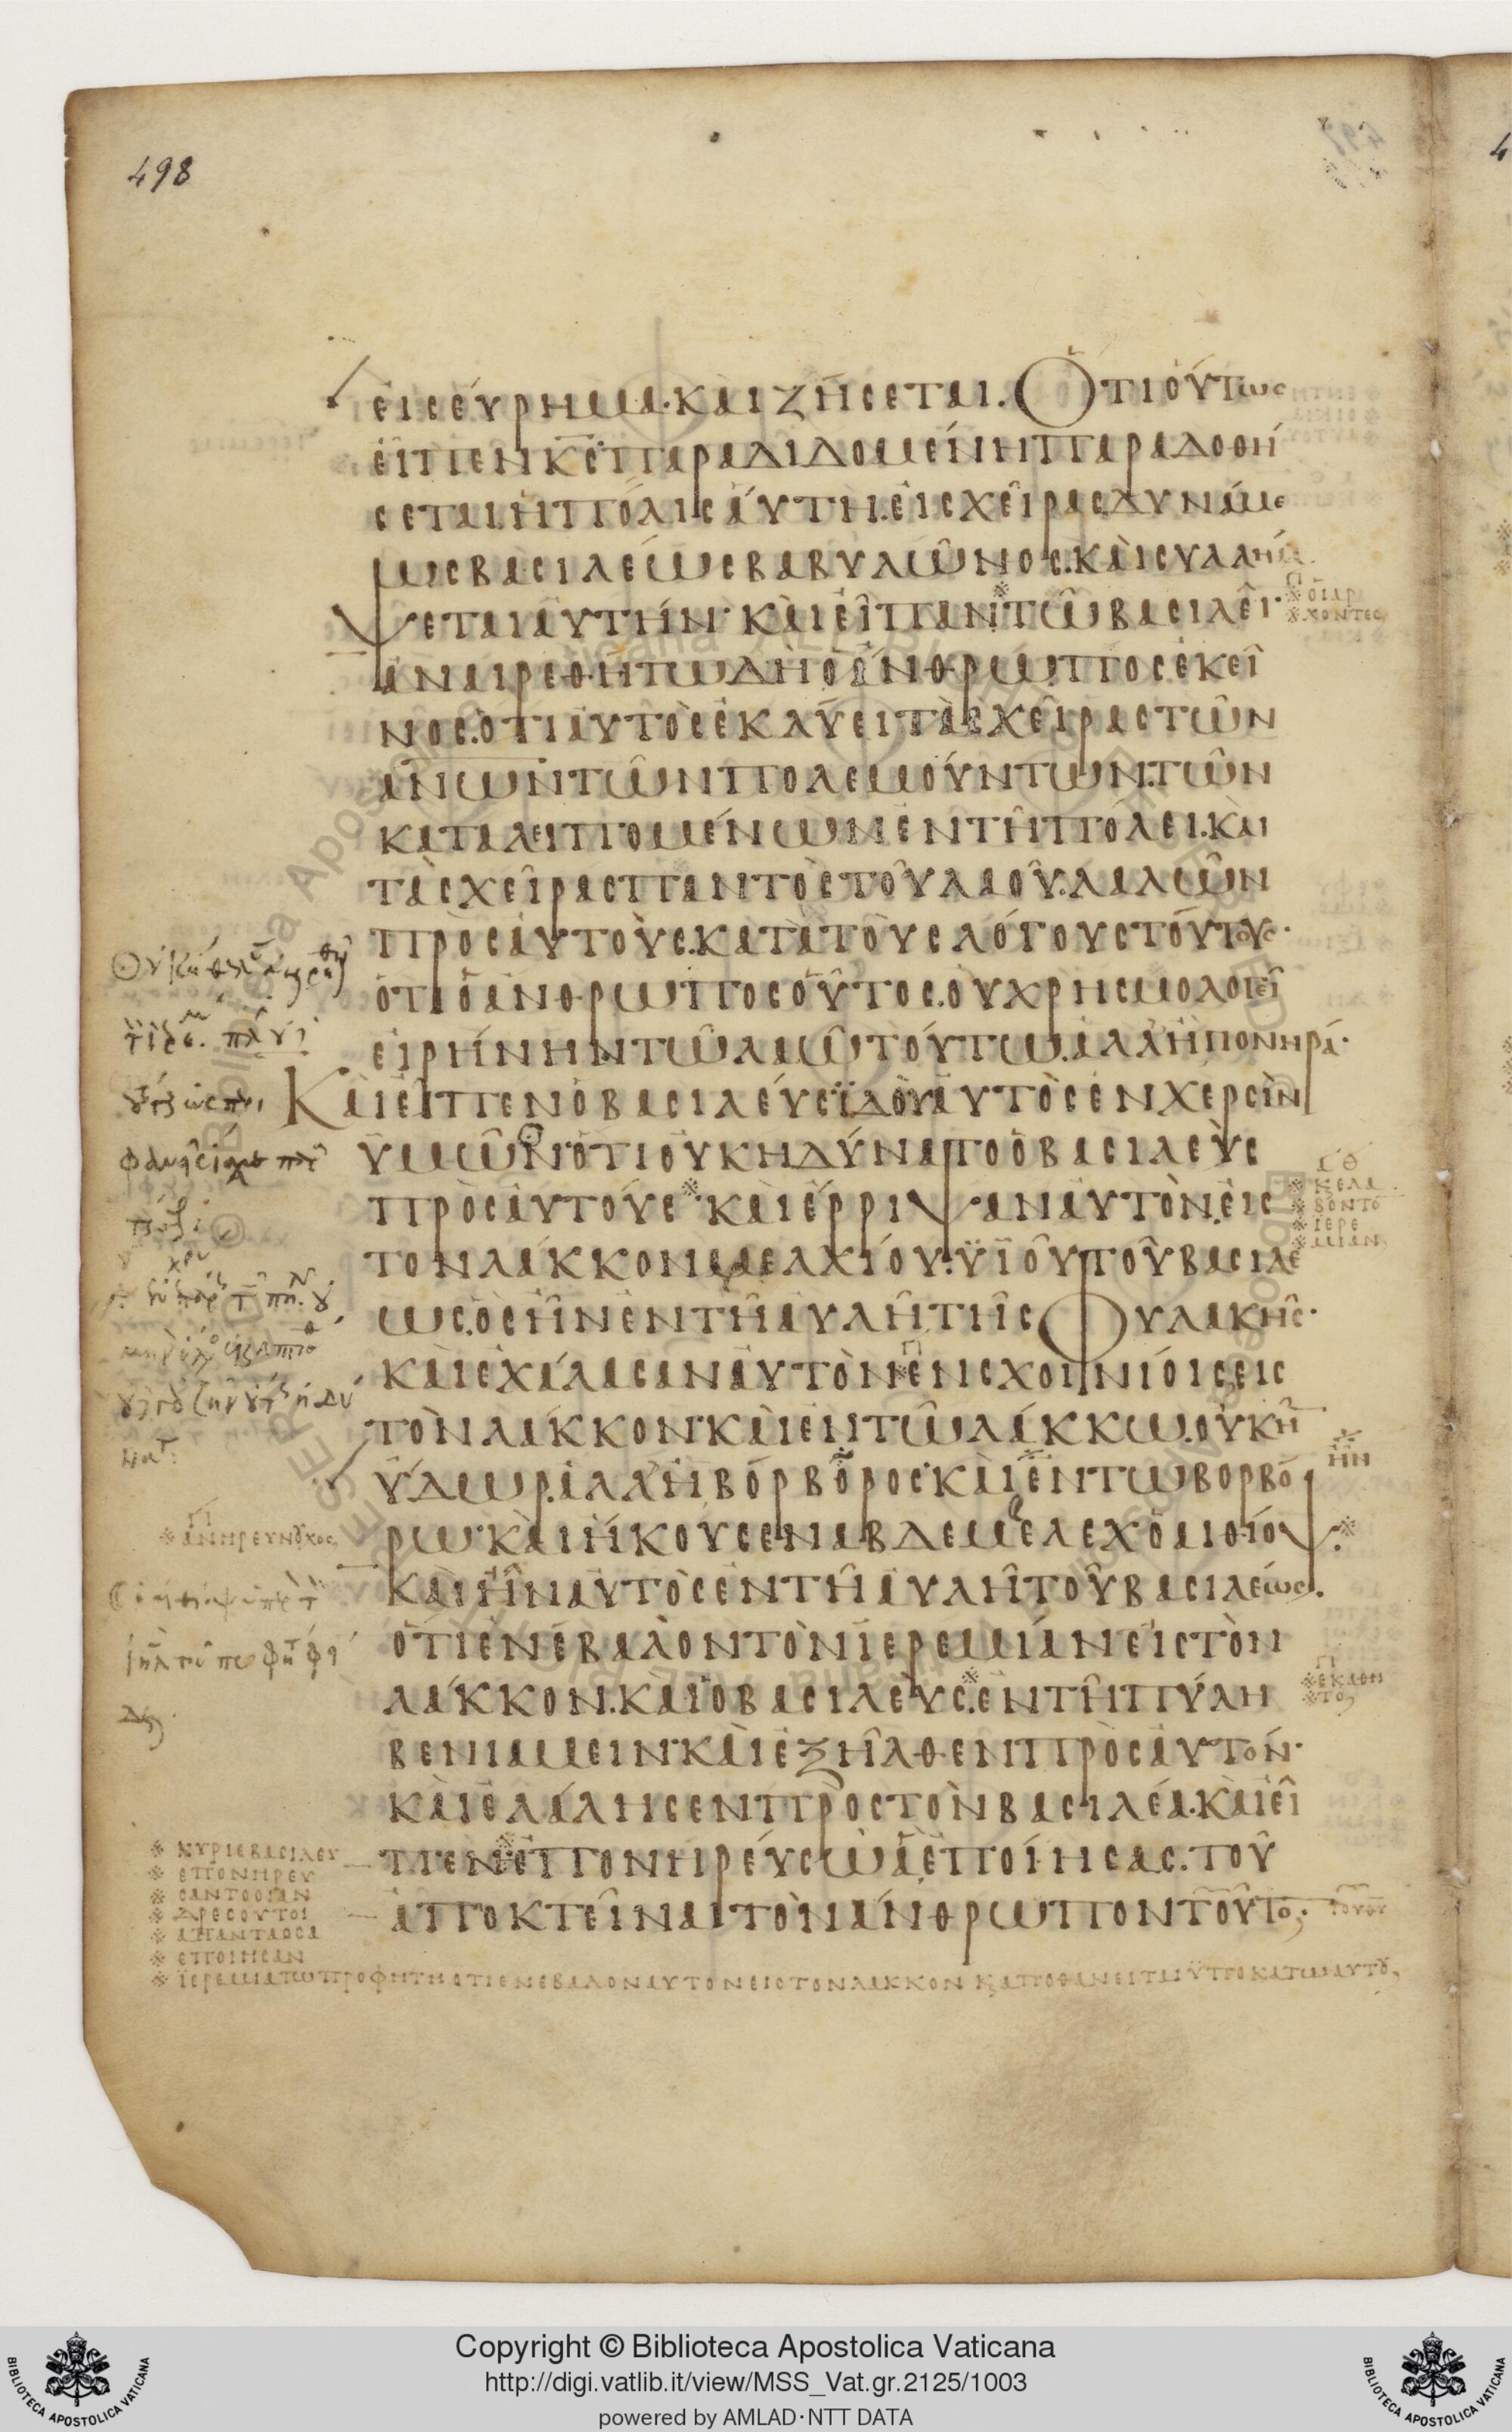 498
ἐις ἑύρημα· κὰι ζήσεται. Ὅτι ὁύτως
ἐῖπεν κ̅ς̅ παραδιδομένη παραδοθή
σεται. ἡ πόλις ἁύτη. ἐις χεῖρας δυνάμε
ως βασιλέως βαβυλῶνος. κὰι συλλήμ
ψεται ἀυτήν· κὰι ἐῖπαν τῶ βασιλεῖ·
ἀναιρεθήτω δὴ ὁ ἄνθρωπος ἐκεῖ
νος. ὅτι ἀυτὸς ἐκλύει τὰς χεῖρας τῶν
α̅ν̅ω̅ν̅ τῶν πολεμούντων. τῶν
καταλειπομένων ἐν τῆ πόλει. κὰι
τὰς χεῖρας παντὸς τοῦ λαοῦ. λαλῶν
πρὸς ἀυτοὺς. κατὰ τοὺς λόγους τούτους·
ὅτι ὁ ἄνθρωπος οὗτος. ὀυ χρησμολογεῖ
ἐιρήνην τῶ λαῶ τούτω. ἀλλ' ἢ πονηρά·
Κὰι εἶπεν ὁ βασιλέυς ἰδοὺ ἀυτὸς ἐν χερσὶν
ὑμῶν ὅτι ὀυκ ηδύνατο ὁ βασιλεὺς
πρὸς ἀυτούς· κὰι ἔρριψαν ἀυτὸν. ἐις
τον λάκκον μελχίου. ϋἱοῦ τοῦ βασιλέ
ως. ὃς ἦν ἐν τῆ ἀυλῆ τῆς Φυλακῆς·
κὰι ἐχάλασαν ἀυτὸν ἐν σχοινίοις ἐις
τὸν λάκκον· κὰι ἐν τῶ λάκκω. ὀυκ ἦ
ὕδωρ. ἀλλ' ἢ βόρβορος· κὰι ἐν τω βορβό
ρω· κὰι ἤκουσεν αβδεμελεχ ὁ αιθίοψ·
κὰι ἦν ἀυτὸς ἐν τῆ ἀυλῆ τοῦ βασιλέως.
ὅτι ἐνέβαλον τὸν ἱερεμίαν ἐις τὸν
λάκκον. κὰι ὁ βασιλεὺς. ἐν τῆ πύλη
βενιαμειν· κὰι ἐξῆλθεν πρὸς ἀυτόν·
κὰι ἐλάλησεν πρὸς τὸν βασιλέα. κὰι ἐῖ
πεν ἐπονηρέυσω ἃ ἐποίησας. τοῦ
ἀποκτεῖναι τὸν ἄνθρωπον τοῦτον·
※ ὁι αρ
※ χοντες
※ κ ελα
※ βοντο
※ ιερε
※ μιαν
ην
※ ανηρ ευνουχος
※ εκαθη
※ το
※ κυριε βασιλευ
※ επονηρευ
※ σαντο οι αν
※ δρες ουτοι
※ απαντα οσα
※ εποιησαν
※ ϊερεμια τω προφητη οτι ενεβαλον αυτον εις τον λακκον κ αποθανειται ϋποκατω αυτου
Copyright © Biblioteca Apostolica Vaticana
http://digi.vatlib.it/view/MSS_Vat.gr.2125/1003
powered by AMLAD·NTT DATA
BIBLIOTECA APOSTOLICA VATICANA
BIBLIOTECA APOSTOLICA VATICANA